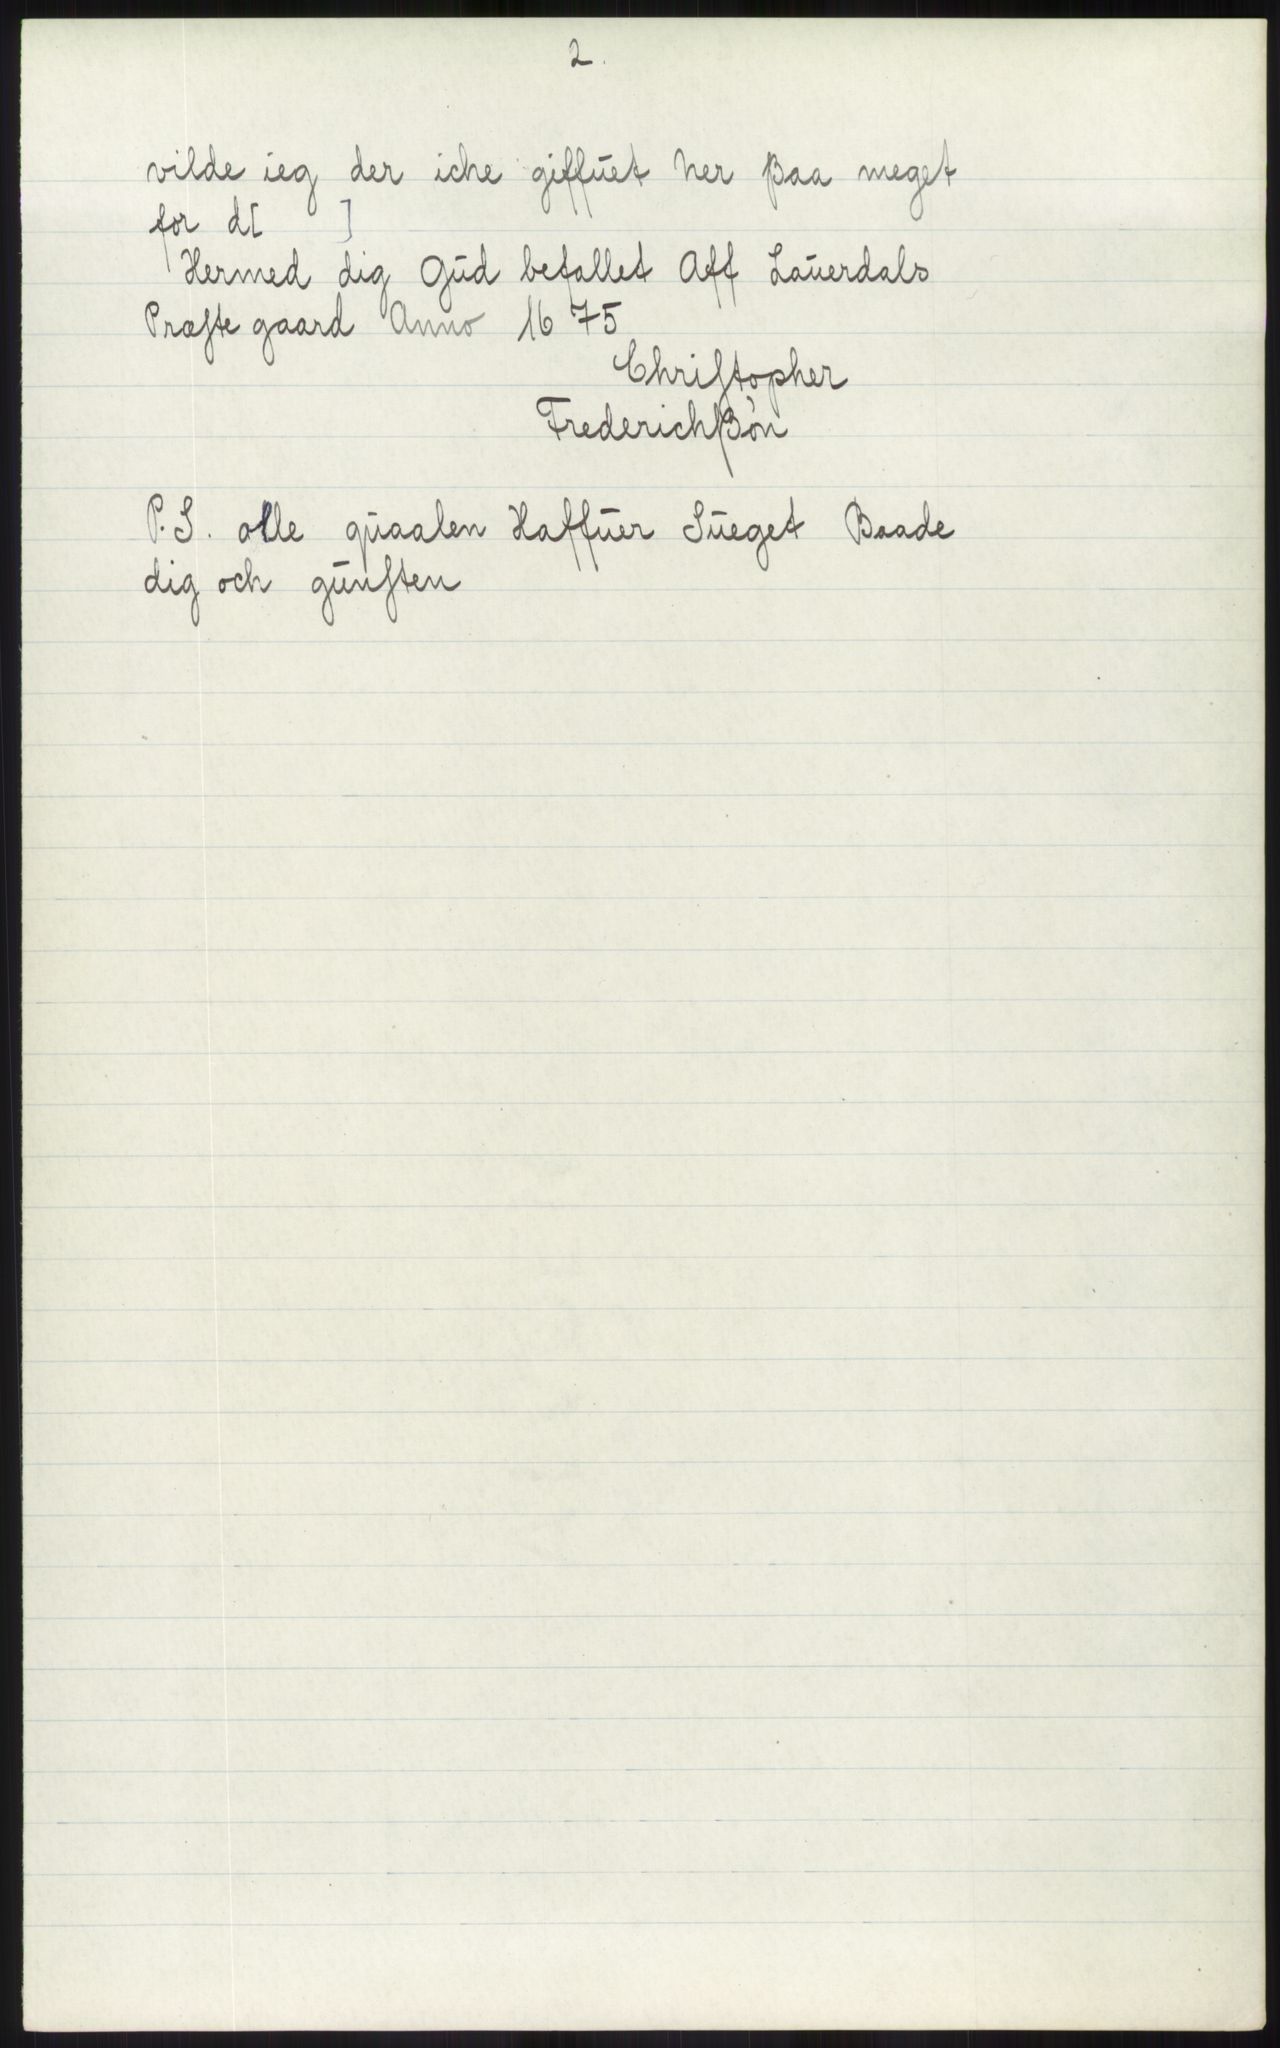 2.
vilde ieg der iche giffūet her ſaa meget
for d[ ]
Hermed dig Gūd befallet Aff Laūerdals
Præſte gaard Anno 1675
Chriſtopher
Frederichſßòn
P.S. olle qūaalen Haffūer Sūeget Baade
dig och gūnſten